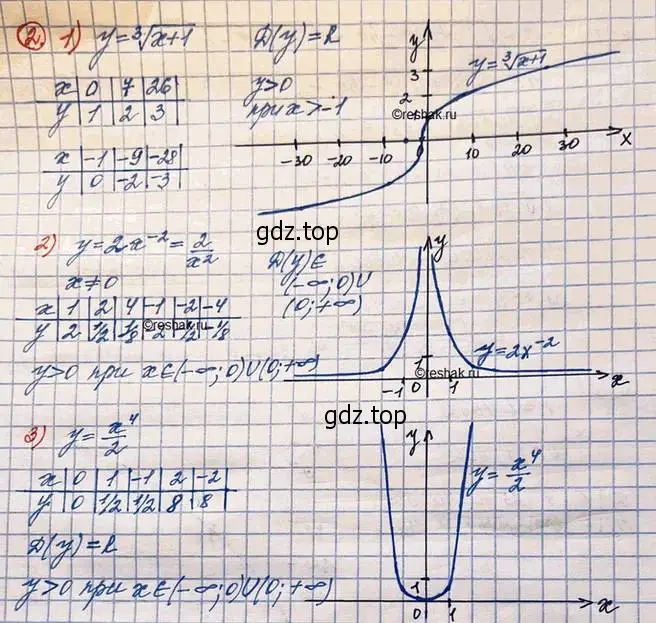 2. 1) y = ∛(x+1) D(y) = R
x | 0 | 7 | 26
y | 1 | 2 | 3
y > 0
при x > -1
x | -1 | -9 | -28
y | 0 | -2 | -3
y
y = ∛(x+1)
3
2
1
©reshak.ru
-30 -20 -10 0 10 20 30 x
gdz.top
2) y = 2x⁻² = 2/x²
x ≠ 0
D(y) ∈
(-∞; 0) ∪
(0; +∞)
x | 1 | 2 | 4 | -1 | -2 | -4
y | 2 | 1/2 | 1/8 | 2 | 1/2 | -1/8
©reshak.ru
y > 0 при x ∈ (-∞; 0) ∪ (0; +∞)
y
y = 2x⁻²
1
©reshak.ru
-1 0 1 x
gdz.top
3) y = x⁴/2
x | 0 | 1 | -1 | 2 | -2
y | 0 | 1/2 | 1/2 | 8 | 8
D(y) = R
y > 0 при x ∈ (-∞; 0) ∪ (0; +∞)
y
y = x⁴/2
1
0 1 x